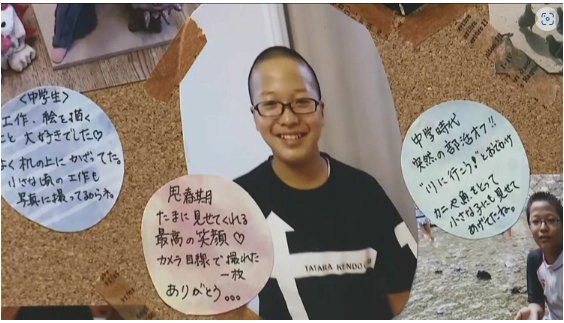 〈中学生〉
工作、絵を描く
こと大好きでした♡
よく机の上にかざってた。
小さな頃の工作も
写真に撮ってるからね。
思春期
たまに見せてくれる
最高の笑顔♡
カメラ目線で撮れた
一枚
ありがとう…
TATARA KENDO
中学時代
突然の部活オフ!!
"川に行こう!"とおでかけ
カニや魚をとって
小さな子にも見せて
あげてたね。